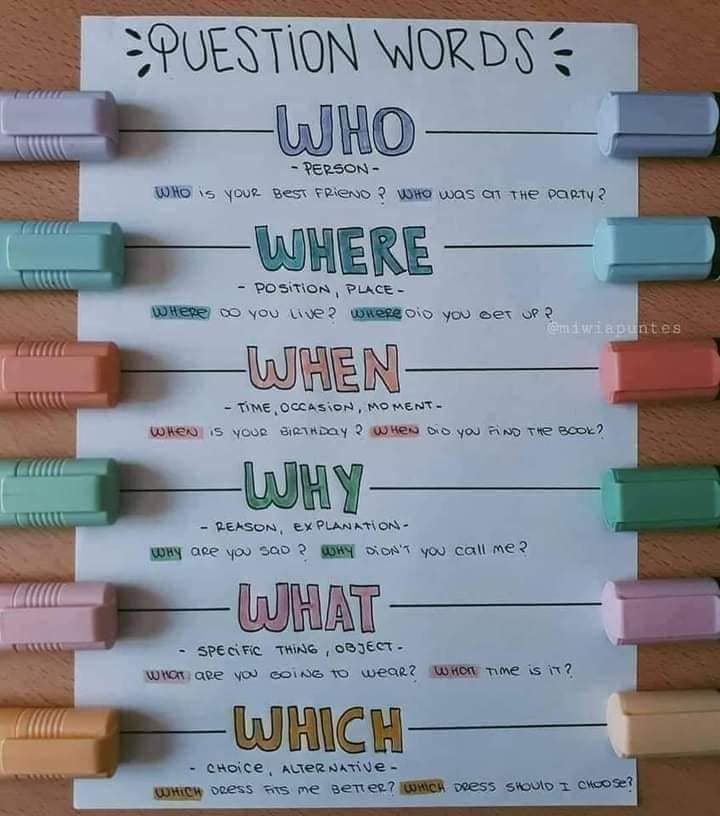 QUESTION WORDS
WHO
- PERSON -
WHO IS YOUR BEST FRIEND? WHO WAS AT THE PARTY?
WHERE
- POSITION, PLACE -
WHERE DO YOU LIVE? WHERE DID YOU GET UP?
@miwiapuntes
WHEN
- TIME, OCCASION, MOMENT -
WHEN IS YOUR BIRTHDAY? WHEN DID YOU FIND THE BOOK?
WHY
- REASON, EXPLANATION -
WHY ARE YOU SAD? WHY DIDN'T YOU CALL ME?
WHAT
- SPECIFIC THING, OBJECT -
WHAT ARE YOU GOING TO WEAR? WHAT TIME IS IT?
WHICH
- CHOICE, ALTERNATIVE -
WHICH DRESS FITS ME BETTER? WHICH DRESS SHOULD I CHOOSE?